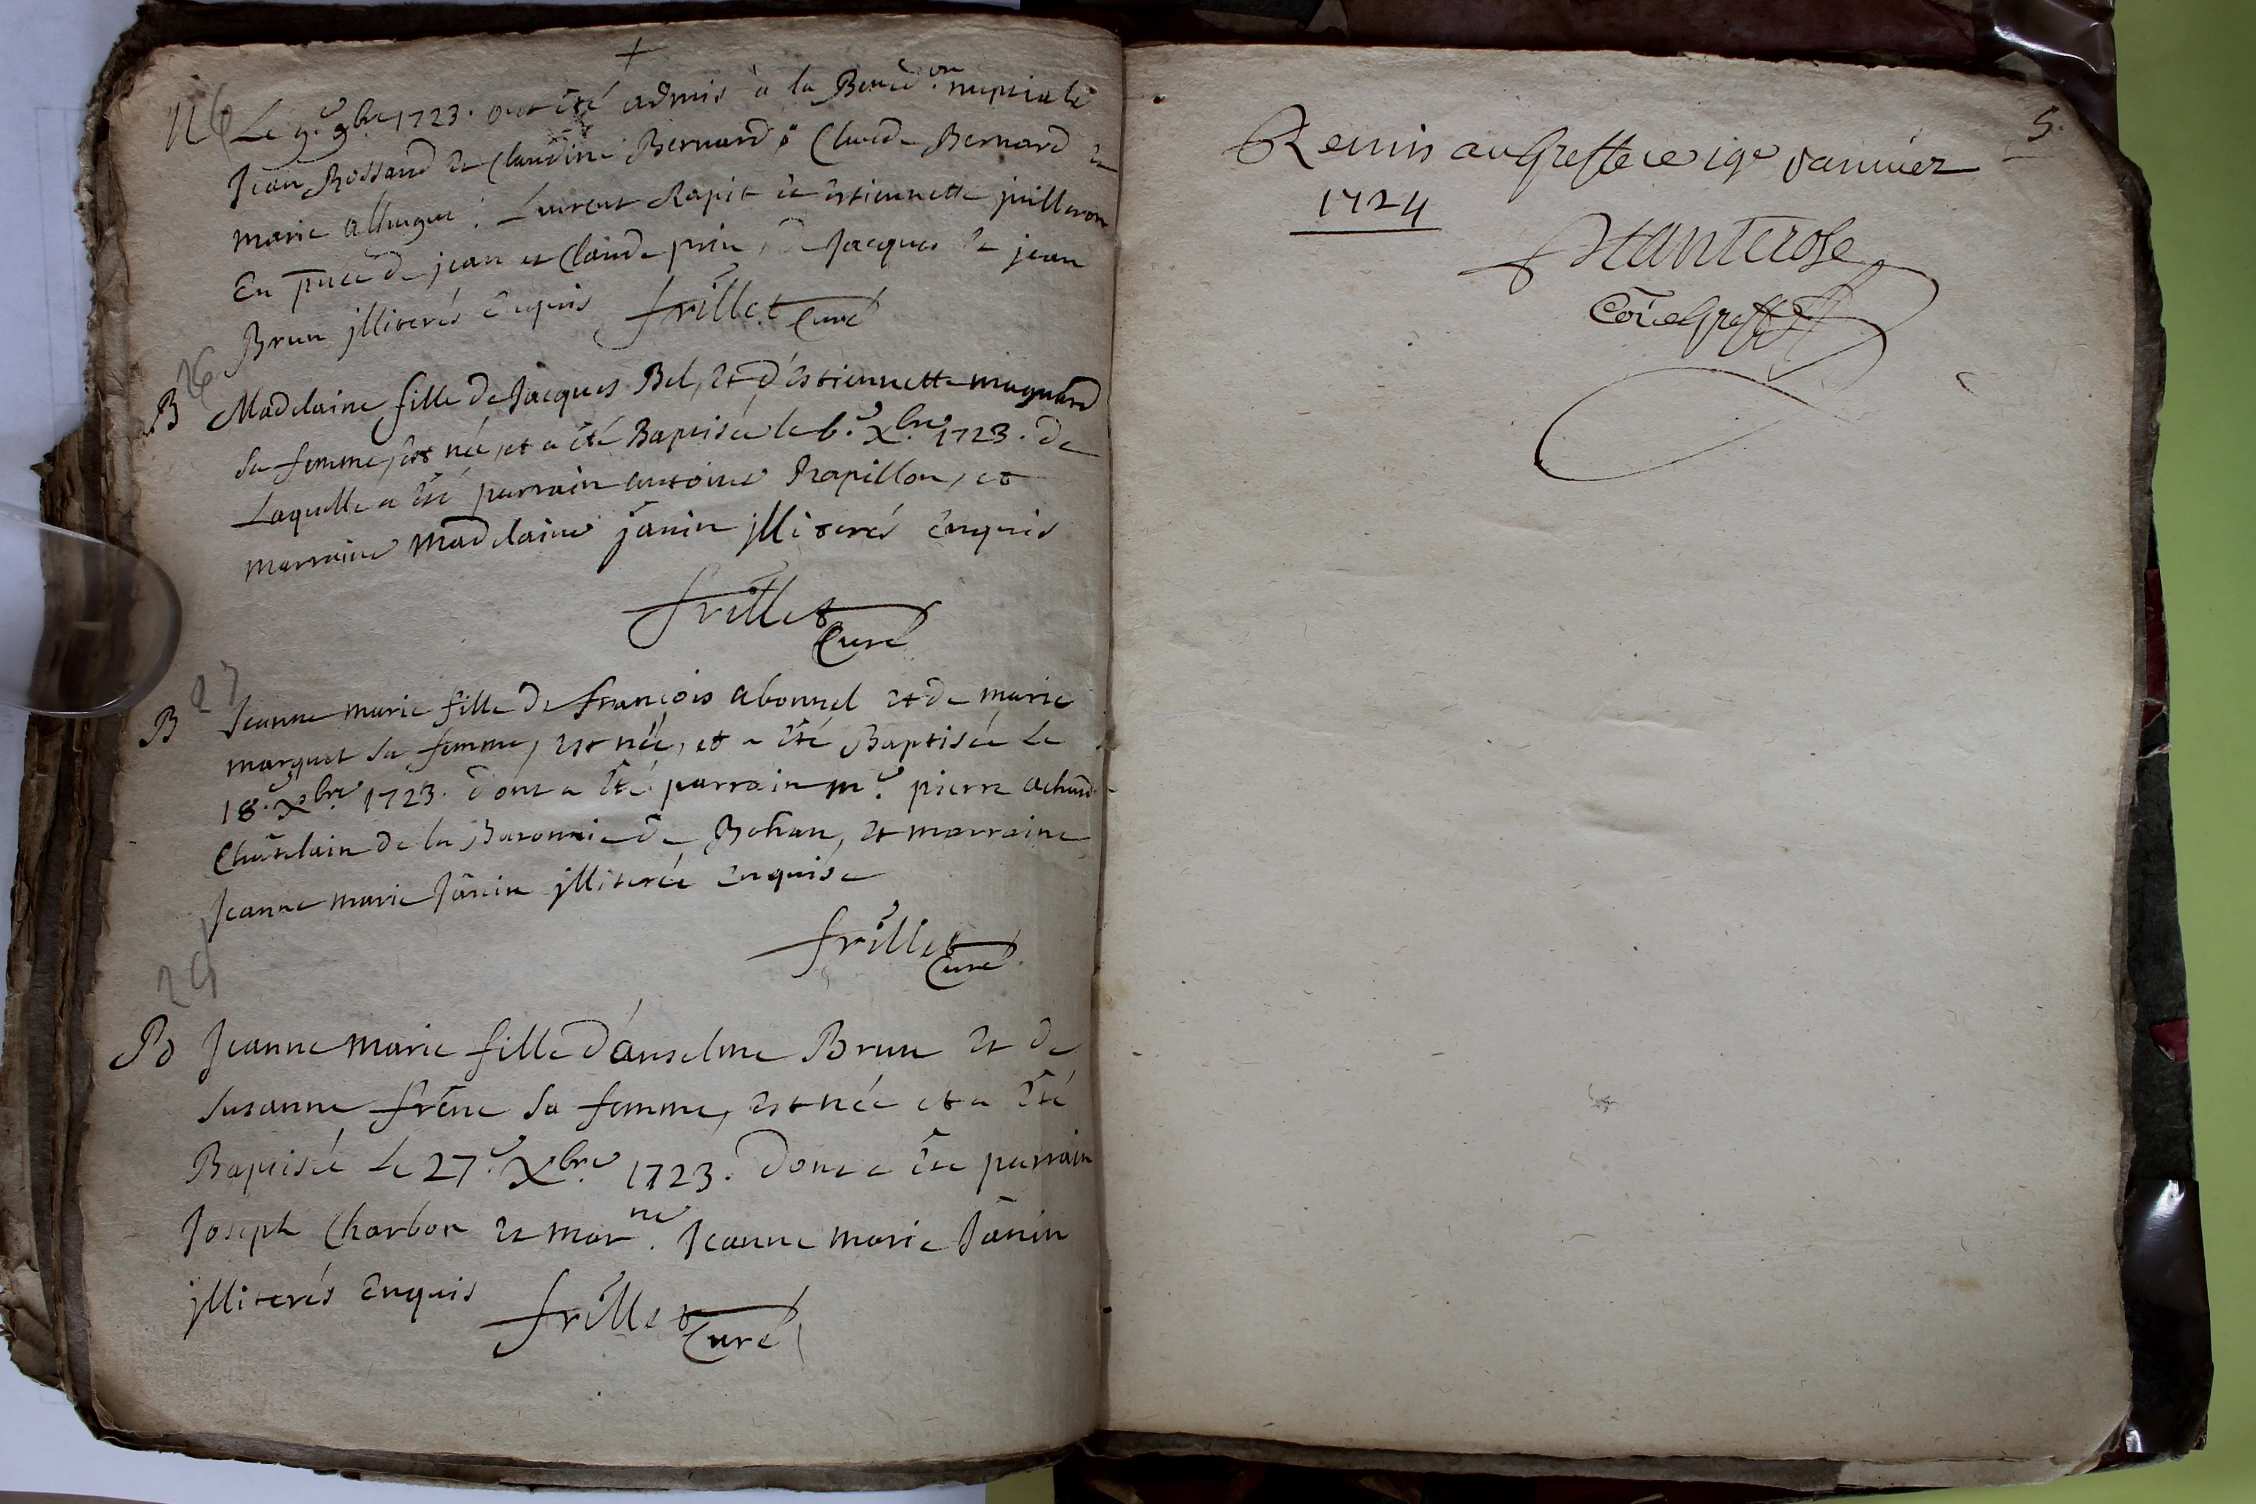 +
Le 9.e 9bre 1723. ont été admis à la Bened.on nuptiale
Jean Rossand et Claudine Bernard, Claude Bernard et
marie : Laurent Rapit et estiennette juilleron
En pnce de jean et Claude prin, de Jacques et jean
Brun jlliterés Enquis frillet Curé
26
B Madelaine fille de Jacques Bel, et d'éstiennette mugnard
sa femme, est née, et a été Baptisée le 6.e Xbre 1723. de
Laquelle a été parrain antoine Rapillon, et
marraine Madelaine janin jlliterés Enquis
frillet
Curé
27
B Jeanne marie fille de françois abonnel et de marie
marguet sa femme, est née, et a été Baptisée Le
18.e Xbre 1723. dont a été parrain m.e pierre achard
Châtelain de la Baronnie de Bohan, et marraine
Jeanne marie Janin jlliterée enquise
frillet
Curé
B Jeanne marie fille d'anselme Brun et de
susanne frêne sa femme, est née et a été
Baptisée Le 27.e Xbre 1723. Dont a été parrain
Joseph Charbon et mar.ne Jeanne marie Janin
jlliterés Enquis frillet
Curé
5.
Remis au Greffe ce 19e Janvier
1724